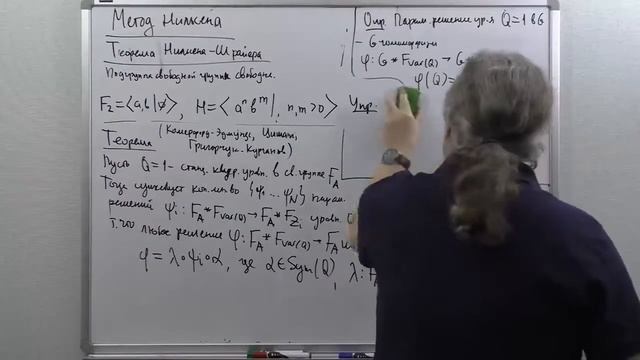 Метод Нильсена
Теорема Нильсена-Шрайера
Подгруппа свободной группы свободна.
F₂ = ⟨a, b | ∅⟩, H = ⟨ aⁿ bᵐ |, n, m > 0 ⟩
Теорема (Камерфорд-Эдмундс,
Григорчук-Курчанов)
Пусть Q = 1 - станд. квадр. уравн. в св. группе F_A
Тогда существует кон. мн-во {ψ₁ ... ψ_N} парам.
решений ψᵢ: F_A * F_Var(Q) → F_A * F_Zᵢ уравн.
т.что любое решение φ: F_A * F_Var(Q) → F_A
φ = λ∘ψᵢ∘α, где α ∈ Sym(Q), λ: F
Опр. Парам. решение ур-я Q = 1 в G
- G-гомоморфизм
φ: G * F_Var(Q) → G
φ(Q) =
Упр.